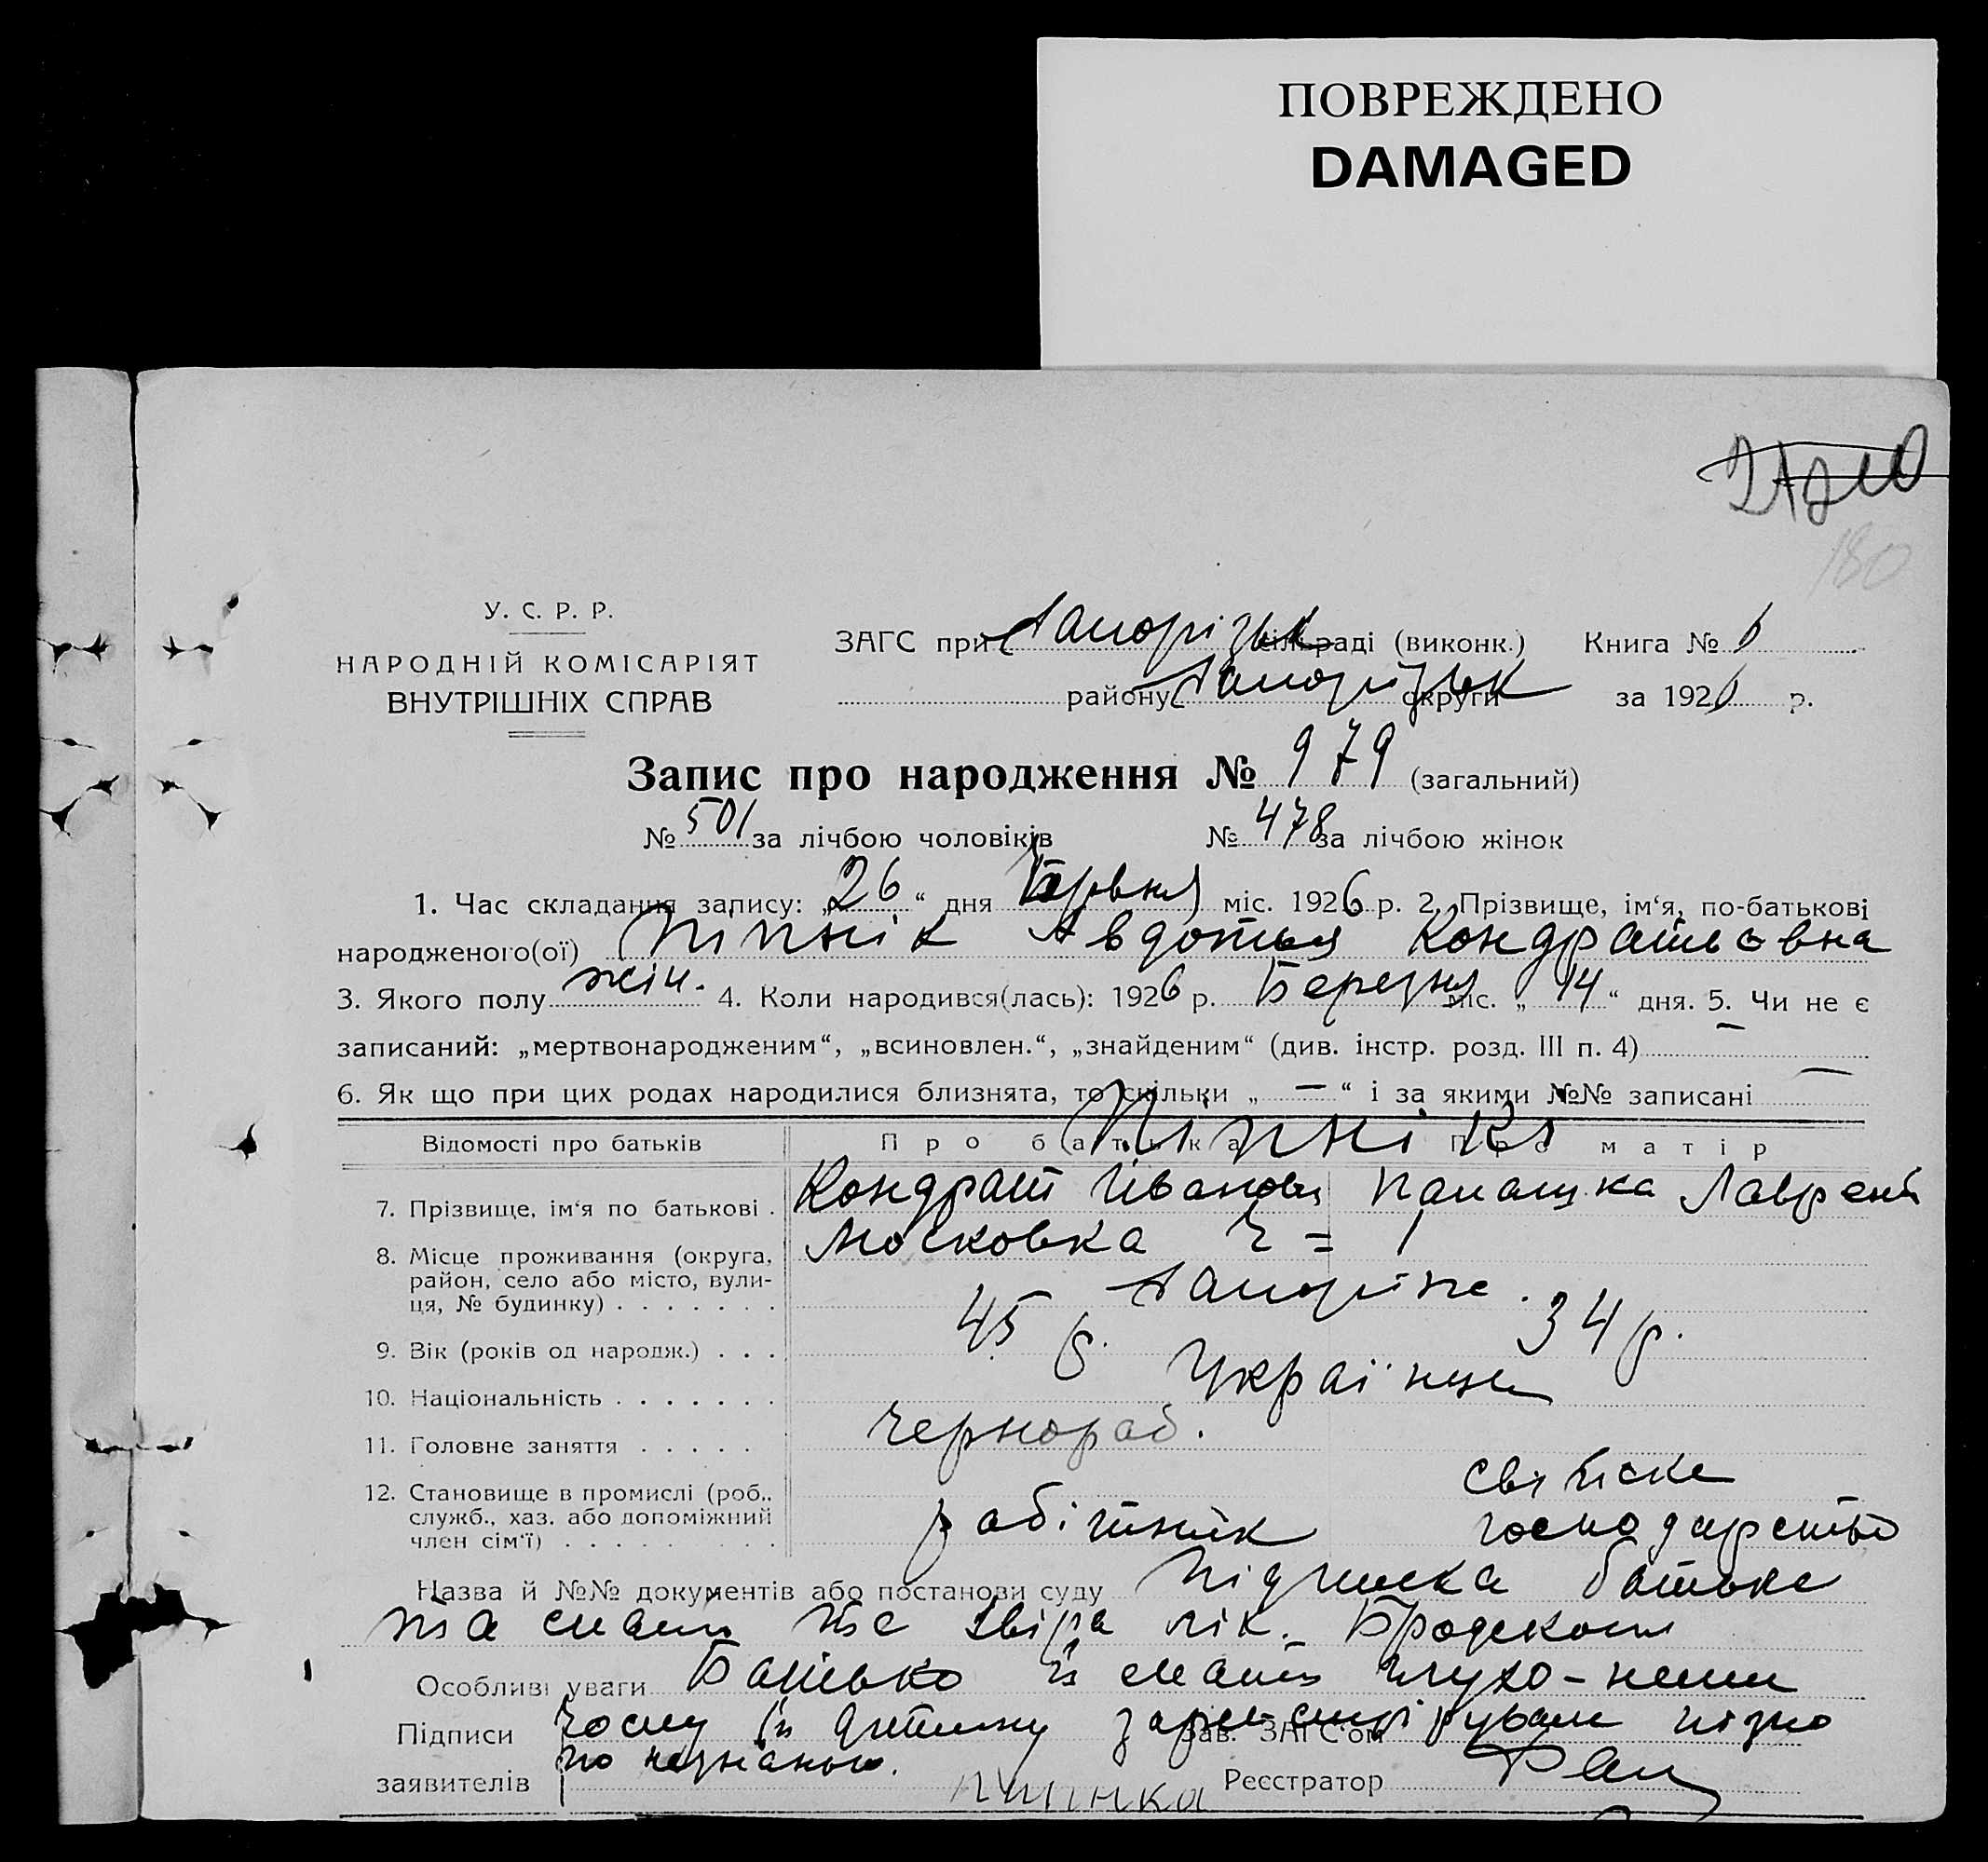 ПОВРЕЖДЕНО
DAMAGED
180
У. С. Р. Р.
НАРОДНІЙ КОМІСАРІЯТ
ВНУТРІШНІХ СПРАВ
ЗАГС при Запорізьк сільраді (виконк.) Книга № 6
району Запорізьк округи за 1926 р.
Запис про народження № 979 (загальний)
№ 501 за лічбою чоловіків № 478 за лічбою жінок
1. Час складання запису: „26“ дня міс. 1926 р. 2. Прізвище, ім‘я, по-батькові
народженого(ої) Піпнік Авдотья Кондратьевна
3. Якого полу жін. 4. Коли народився(лась): 1926 р. Березня міс. „14“ дня. 5. Чи не є
записаний: „мертвонародженим“, „всиновлен.“, „знайденим“ (див. інстр. розд. III п. 4) —
6. Як що при цих родах народилися близнята, то скільки „ — “ і за якими №№ записані —
Відомості про батьків Про батька Про матір
Піпнік
7. Прізвище, ім‘я по батькові . Кондрат Іванов Палашка Лаврент
8. Місце проживання (округа, район, село або місто, вулиця, № будинку) . . . . . . . Московка Ч = 1
Запоріже.
9. Вік (років од народж.) . . . 45 р. 34 р.
10. Національність . . . . . . . Українці
11. Головне заняття . . . . . Чернораб.
12. Становище в промислі (роб., служб., хаз. або допоміжний член сім‘ї) . . . . . . . . . робітник господарство
Назва й №№ документів або постанови суду Підписка батька
та мати та лік. Бродского
Особливі уваги Батько й мати глухо-неми
Підписи чому й дитину зарегистрірували пізно
Зав. ЗАГС‘ом
по незнанью.
заявителів Реєстратор